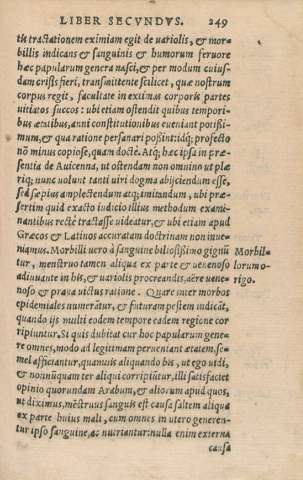 LIBER SECVNDVS. 249
tis tractationem eximiam egit de uariolis, & mor⸗
billis indicans è sanguinis & humorum feruore
hæc papularum genera nasci, et per modum cuius⸗
dam crisis fieri, transmittente scilicet, quæ nostrum
corpus regit, facultate in eximas corporis partes
uitiatos succos: ubi etiam ostendit quibus tempori⸗
bus ætatibus, anni constitutionibus eueniant potißi⸗
mum, & qua ratione persanari poßint: idq́; profecto
nō minus copiose, quam doctè. Atq́; hæc ipsa in præ⸗
sentia de Auicenna, ut ostendam non omnino ut plæ
riq; nunc uolunt tanti uiri dogma abijciendum esse,
sed sæpius amplectendum atq; imitandum, ubi præ⸗
sertim quid exacto iudicio illius methodum exami⸗
nantibus rectè tractasse uideatur, & ubi etiam apud
Græcos & Latinos accuratam doctrinam non inue⸗
niamus. Morbilli uero à sanguine biliosißimo gignū
tur, menstruo tamen aliqua ex parte & uenenoso
adiuuante in his, & uariolis procreandis, aëre uene⸗
noso & praua uictus ratione. Quare inter morbos
epidemiales numerātur, & futuram pestem indicāt,
quando ijs multi eodem tempore eadem regione cor
ripiuntur. Si quis dubitat cur hoc papularum gene⸗
re omnes, modo ad legittimam perueniant ætatem, se⸗
mel afficiantur, quamuis aliquando bis, ut ego uidi,
& nonnūquam ter aliqui corripiūtur, illi satisfaciet
opinio quorundam Arabum, & aliorum apud quos,
ut diximus, mēstruus sanguis est causa saltem aliqua
ex parte huius mali, cum omnes in utero generen⸗
tur ipso sanguine, ac nutriantur: nulla enim externa
causa
Morbil⸗
lorum o⸗
rigo.